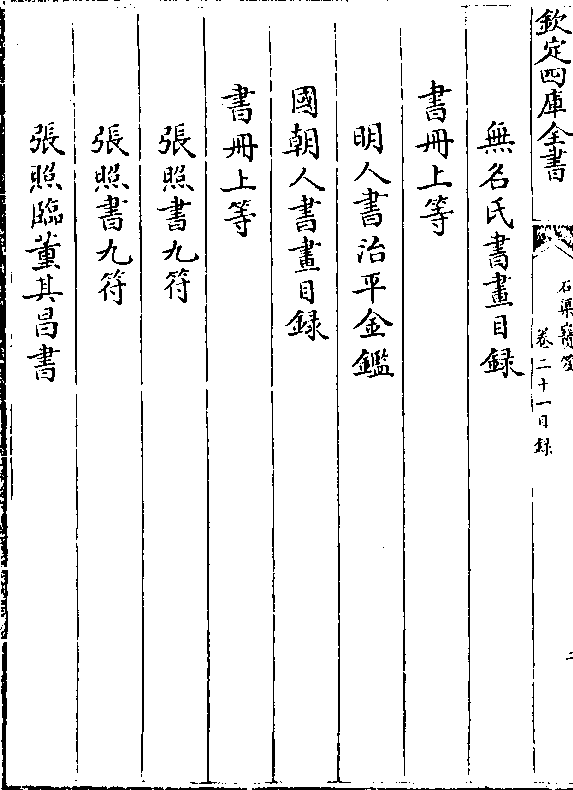 欽定四庫全書
石渠寶笈
卷二十一目録
二
無名氏書畫目録
書冊上等
明人書治平金鑑
國朝人書畫目録
書冊上等
張照書九符
張照書九符
張照臨董其昌書